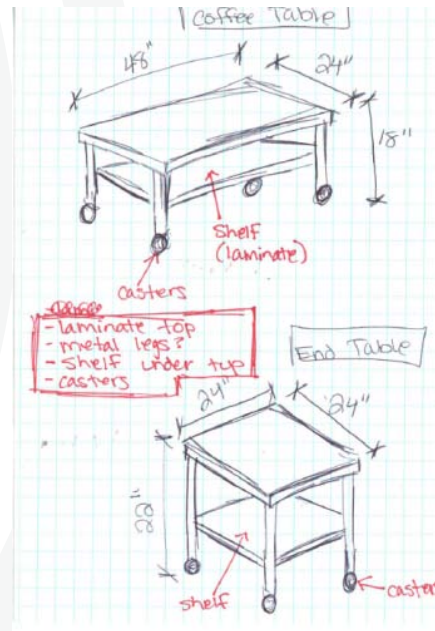 Coffee Table
48"
24"
18"
Shelf
(laminate)
casters
- laminate top
- metal legs?
- shelf under top
- casters
End Table
24"
24"
shelf
caster